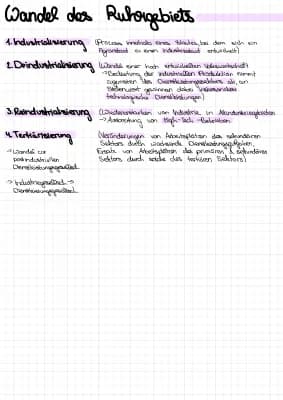 Wandel des Ruhrgebiets
1. Industrialisierung (Prozess innerhalb eines Staates, bei dem sich ein
Agrarstaat zu einem Industriestaat entwickelt)
2. Deindustrialisierung (Wandel einer hoch entwickelten Volkswirtschaft)
→ Bedeutung der industriellen Produktion nimmt
zugunsten des Dienstleistungssektors ab, an
Stellenwert gewinnen dabei
technologische Dienstleistungen)
3. Reindustrialisierung (Wiederaufleben von Industrie in Altindustriegebieten
→ Ausbreitung von High-Tech-
4. Tertiärisierung (Veränderungen von Arbeitsplätzen des sekundären
Sektors durch wachsende
Ersatz von Arbeitsplätzen des primären & sekundären
Sektors durch solche des tertiären Sektors)
→ Wandel zur
postindustriellen
Dienstleistungsgesellschaft
→ Industriegesellschaft →
Dienstleistungsgesellschaft